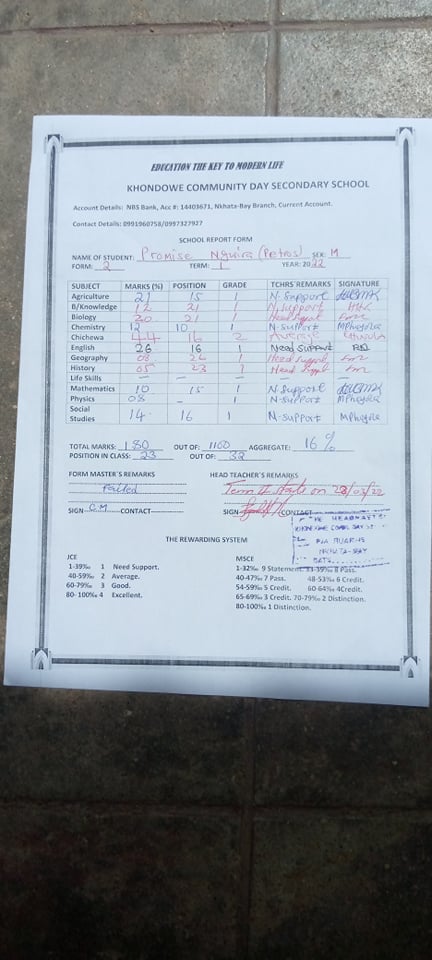 EDUCATION THE KEY TO MODERN LIFE
KHONDOWE COMMUNITY DAY SECONDARY SCHOOL
Account Details: NBS Bank, Acc #: 14403671, Nkhata-Bay Branch, Current Account.
Contact Details: 0991960758/0997327927
SCHOOL REPORT FORM
NAME OF STUDENT: Promise Nguira (Petros) SEX: M
FORM: 2 TERM: 1 YEAR: 2022
SUBJECT MARKS (%) POSITION GRADE TCHRS' REMARKS SIGNATURE
Agriculture 21 15 1 N-Support
B/Knowledge 12 21 1 N.Support
Biology 20 21 1 Need support
Chemistry 12 10 1 N-Support
Chichewa 44 16 2 Average
English 26 16 1 Need Support
Geography 08 26 1 Need support
History 05 23 1 Need support
Life Skills — — — —
Mathematics 10 15 1 N.Support
Physics 08 – 1 N-Support
Social Studies 14 16 1 N-Support
TOTAL MARKS: 180 OUT OF: 1100 AGGREGATE: 16%
POSITION IN CLASS: 23 OUT OF: 32
FORM MASTER'S REMARKS HEAD TEACHER'S REMARKS
Failed Term II starts on
SIGN C.M CONTACT SIGN CONTACT
THE HEADMASTER
NKHATA-BAY
DATE
THE REWARDING SYSTEM
JCE MSCE
1-39% 1 Need Support. 1-32% 9 Statement. 33-39% 8 Pass.
40-59% 2 Average. 40-47% 7 Pass. 48-53% 6 Credit.
60-79% 3 Good. 54-59% 5 Credit. 60-64% 4Credit.
80- 100% 4 Excellent. 65-69% 3 Credit. 70-79% 2 Distinction.
80-100% 1 Distinction.